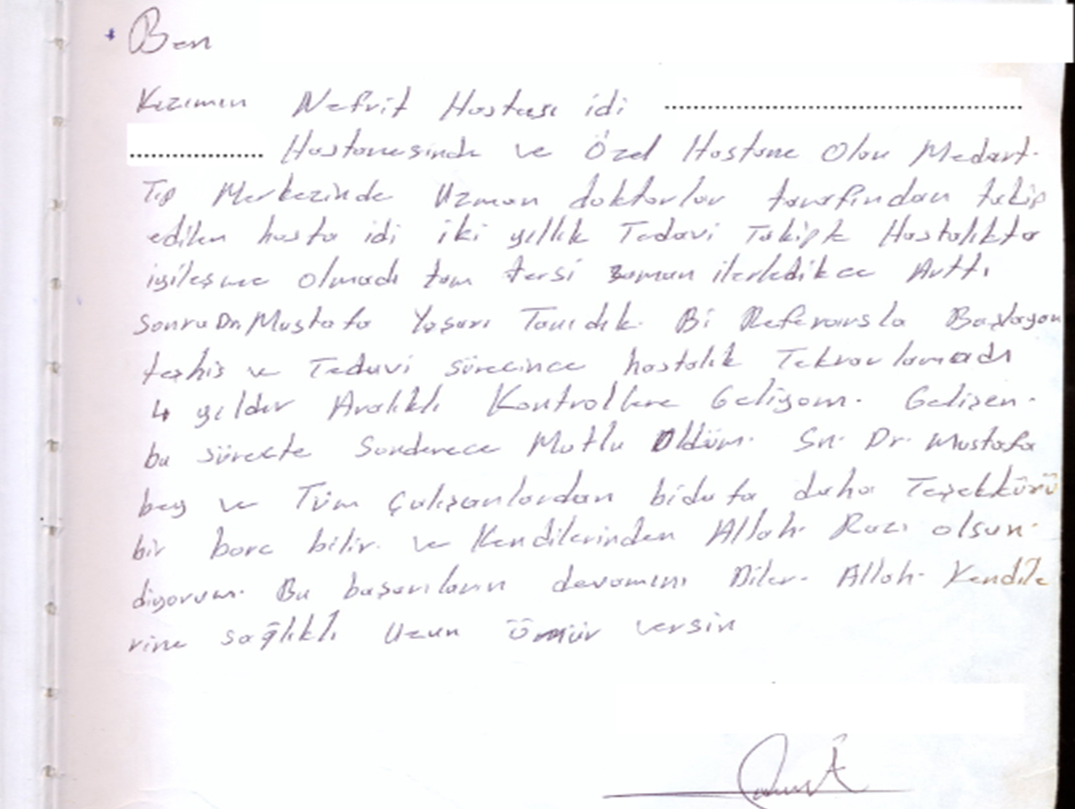 * Ben
Kızımın Nefrit Hastası idi ........................................
............... Hastanesinde ve Özel Hastane Olan Medart.
Tıp Merkezinde Uzman doktorlar tarafından takip
edilen hasta idi iki yıllık Tedavi Takipte Hastalıkta
iyileşme olmadı tam tersi zaman ilerledikce Arttı
Sonra Dr. Mustafa Yaşarı Tanıdık. Bi Referansla Başlayan
teşhis ve Tedavi sürecince hastalık Tekrarlamadı
4 yıldır Aralıklı Kontrollere Geliyom. Gelişen.
bu sürecte Sonderece Mutlu Oldüm. Sn. Dr. Mustafa
bey ve Tüm Çalışanlardan bidafa daha Teşekkürü
bir borc bilir. ve Kendilerinden Allah Razı olsun.
diyorum. Bu başarıların devamını Diler. Allah. Kendile
rine sağlıklı Uzun Ömür versin